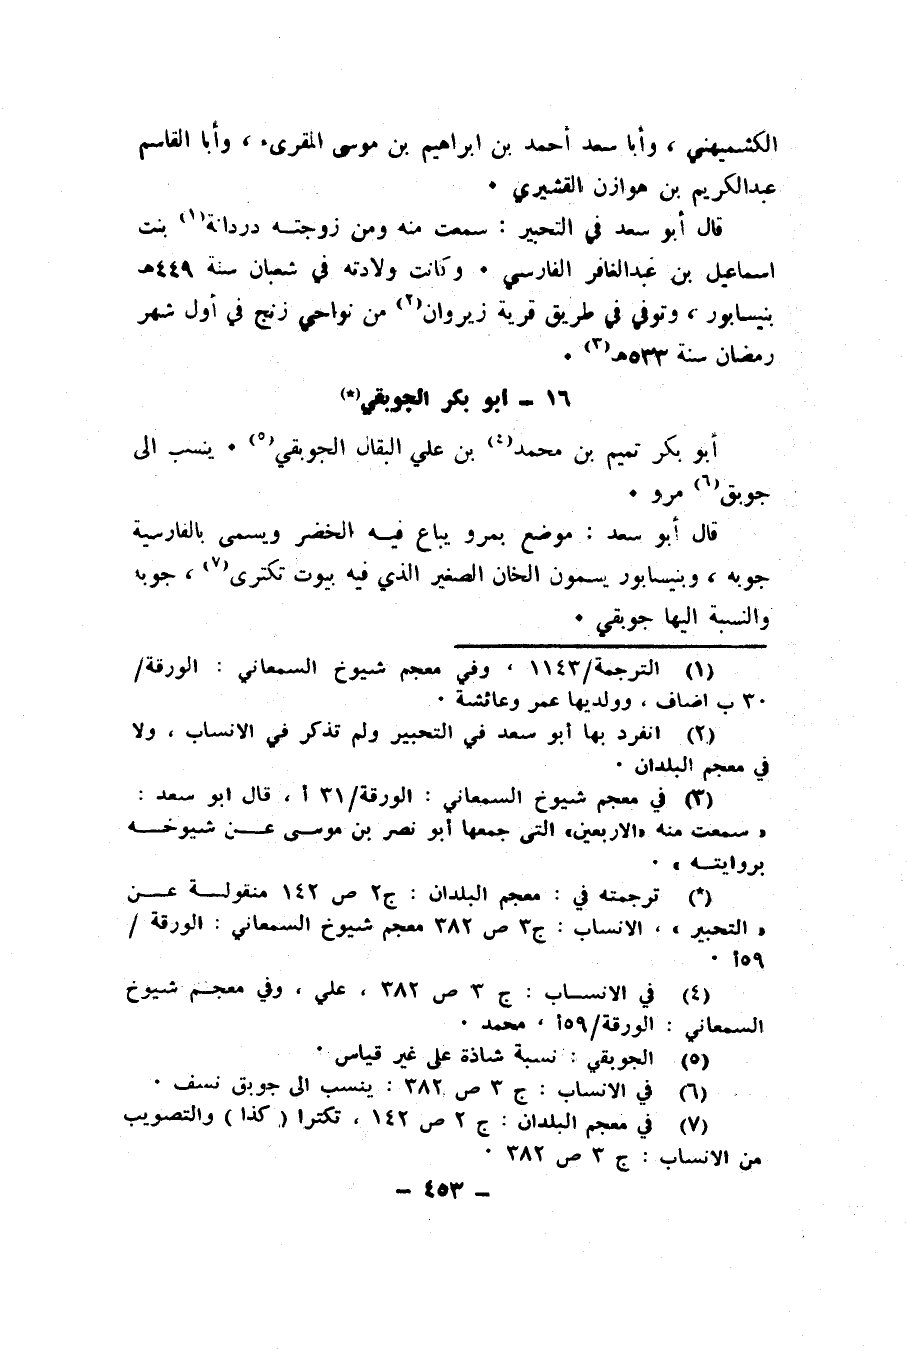 الكشميهني ، وأبا سعد أحمد بن ابراهيم بن موسى المقرىء ، وأبا القاسم
عبدالكريم بن هوازن القشيري .
قال أبو سعد في التحبير : سمعت منه ومن زوجته دردانة(١) بنت
اسماعيل بن عبدالغافر الفارسي . وكانت ولادته في شعبان سنة ٤٤٩هـ
بنيسابور ، وتوفي في طريق قرية زيروان(٢) من نواحي زنج في أول شهر
رمضان سنة ٥٣٣هـ(٣) .
١٦ - ابو بكر الجوبقي(*)
أبو بكر تميم بن محمد(٤) بن علي البقال الجوبقي(٥) . ينسب الى
جوبق(٦) مرو .
قال أبو سعد : موضع بمرو يباع فيه الخضر ويسمى بالفارسية
جوبه ، وبنيسابور يسمون الخان الصغير الذي فيه بيوت تكترى(٧) ، جوبه
والنسبة اليها جوبقي .
(١) الترجمة/١١٤٣ ، وفي معجم شيوخ السمعاني : الورقة/
٣٠ ب اضاف ، وولديها عمر وعائشة .
(٢) انفرد بها أبو سعد في التحبير ولم تذكر في الانساب ، ولا
في معجم البلدان .
(٣) في معجم شيوخ السمعاني : الورقة/٣١ أ ، قال ابو سعد :
« سمعت منه «الاربعين» التى جمعها أبو نصر بن موسى عن شيوخه
بروايته » .
(*) ترجمته في : معجم البلدان : ج٢ ص ١٤٢ منقولة عن
« التحبير » ، الانساب : ج٣ ص ٣٨٢ معجم شيوخ السمعاني : الورقة /
٥٩أ .
(٤) في الانساب : ج ٣ ص ٣٨٢ ، علي ، وفي معجم شيوخ
السمعاني : الورقة/٥٩أ ، محمد .
(٥) الجوبقي : نسبة شاذة على غير قياس .
(٦) في الانساب : ج ٣ ص ٣٨٢ : ينسب الى جوبق نسف .
(٧) في معجم البلدان : ج ٢ ص ١٤٢ ، تكترا ( كذا ) والتصويب
من الانساب : ج ٣ ص ٣٨٢ .
- ٤٥٣ -